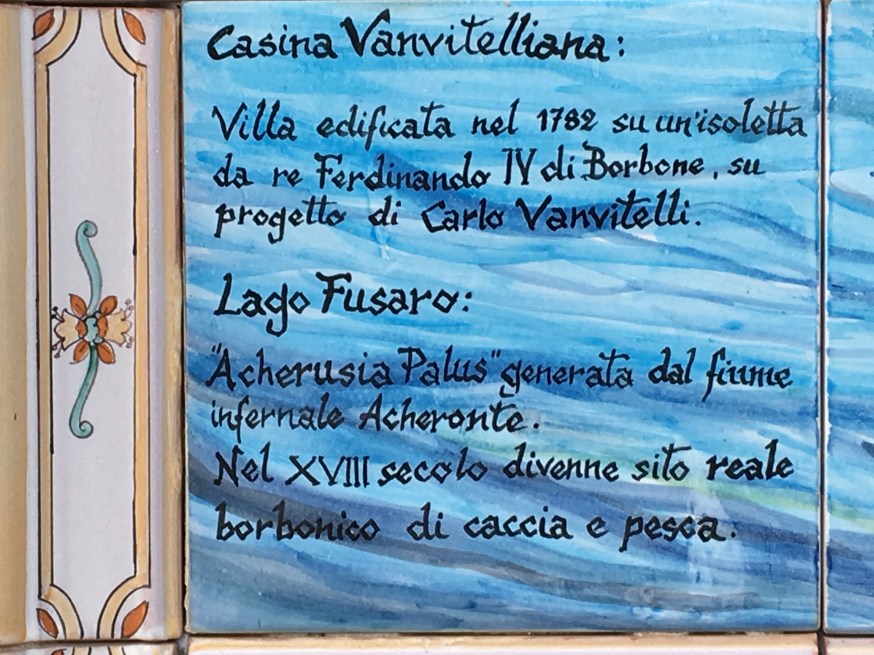 Casina Vanvitelliana:
Villa edificata nel 1782 su un'isoletta
da re Ferdinando IV di Borbone, su
progetto di Carlo Vanvitelli.
Lago Fusaro:
"Acherusia Palus" generata dal fiume
infernale Acheronte.
Nel XVIII secolo divenne sito reale
borbonico di caccia e pesca.